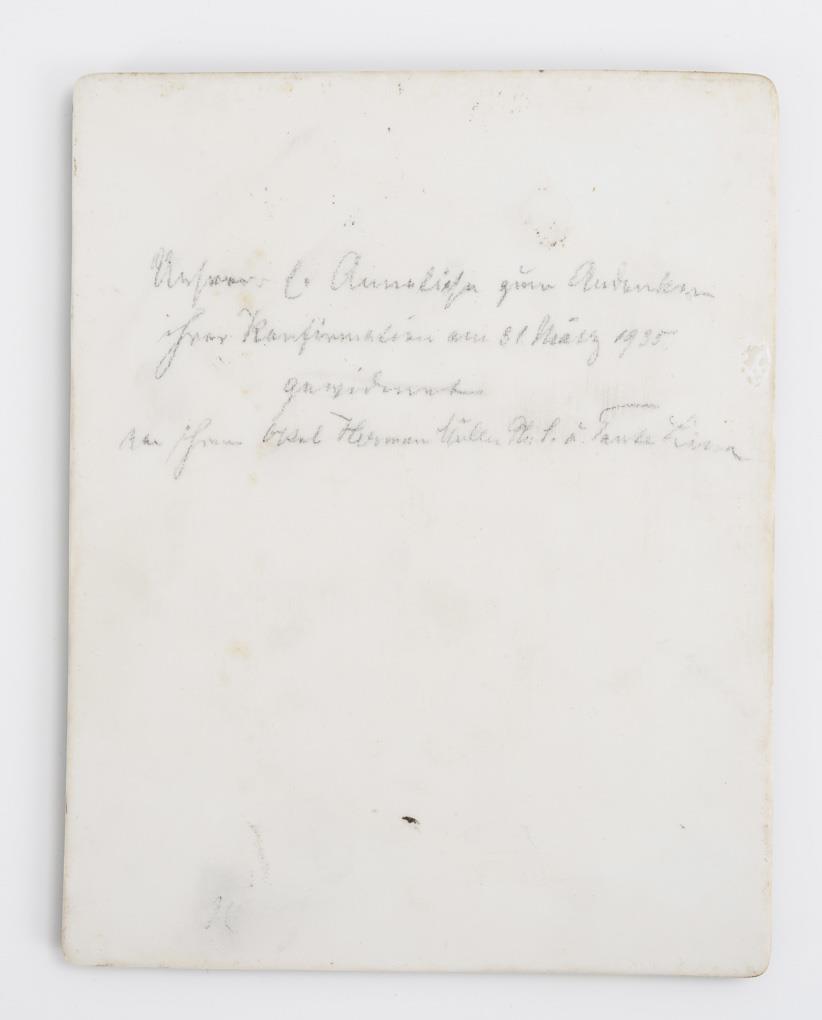 Unserer l. Anneliese zum Andenken
ihrer Konfirmation am 31 März 1935
gewidmet
ihrem Onkel Herman Müller u. Tante